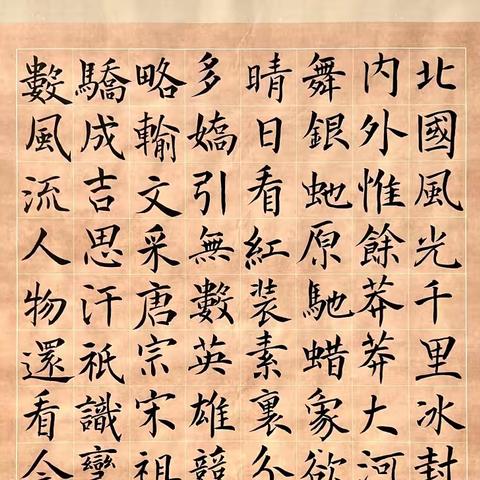 北國風光千里冰封
内外惟餘莽莽大河
舞銀虵原馳蜡象欲
晴日看紅装素裹分
多嬌引無數英雄競
略輸文采唐宗宋祖
驕成吉思汗祇識彎
數風流人物還看今